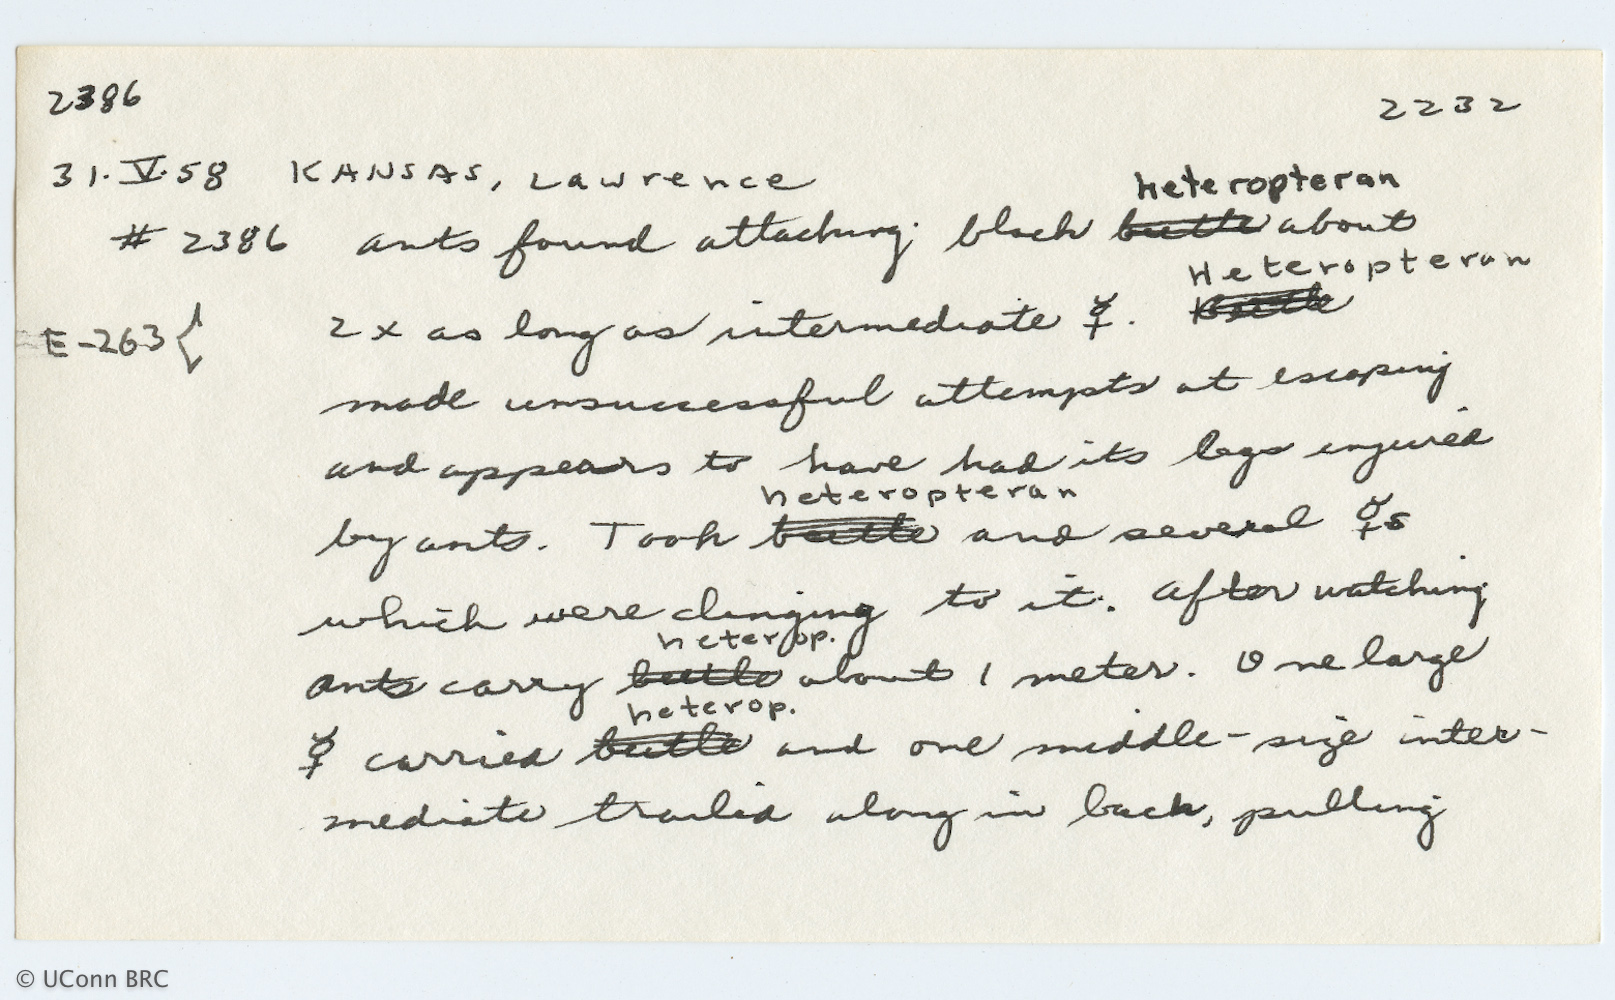 2386
2232
31.V.58 KANSAS, Lawrence
heteropteran
# 2386 ants found attacking black beetle about
Heteropteran
E-263 { 2x as long as intermediate ☿. Beetle
made unsuccessful attempts at escaping
and appears to have had its legs injured
heteropteran
by ants. Took beetle and several ☿s
which were clinging to it. After watching
heterop.
ants carry beetle about 1 meter. One large
heterop.
☿ carried beetle and one middle-size inter-
mediate trailed along in back, pulling
© UConn BRC